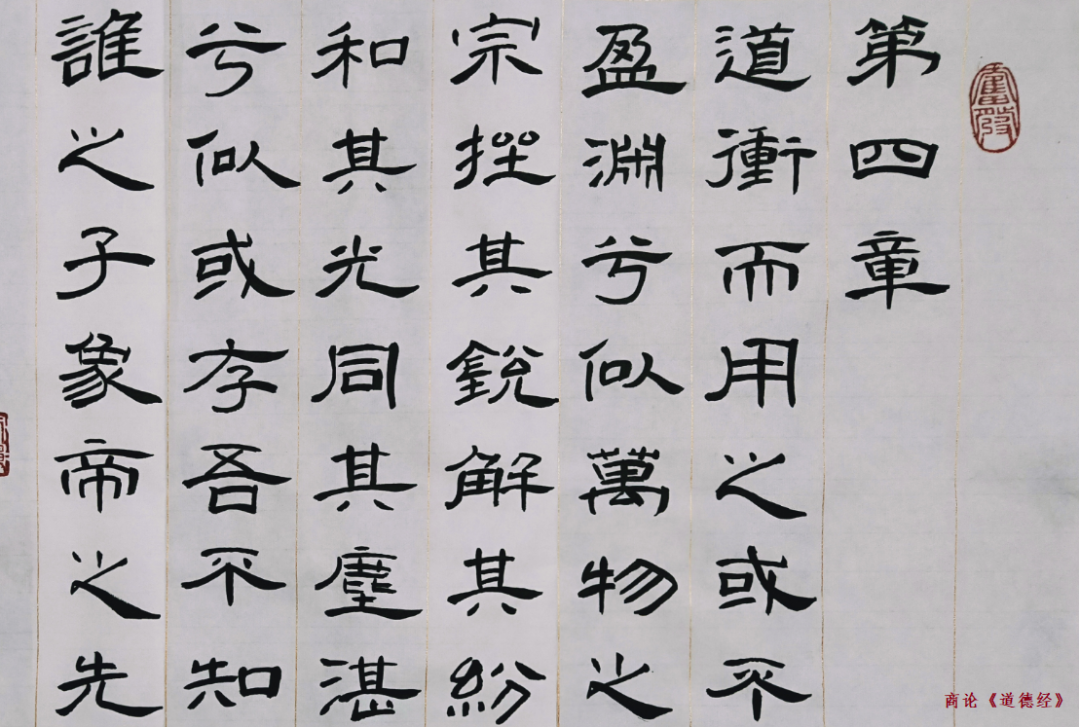 第四章
道衝而用之或不
盈淵兮似萬物之
宗挫其銳解其紛
和其光同其塵湛
兮似或存吾不知
誰之子象帝之先
商论《道德经》